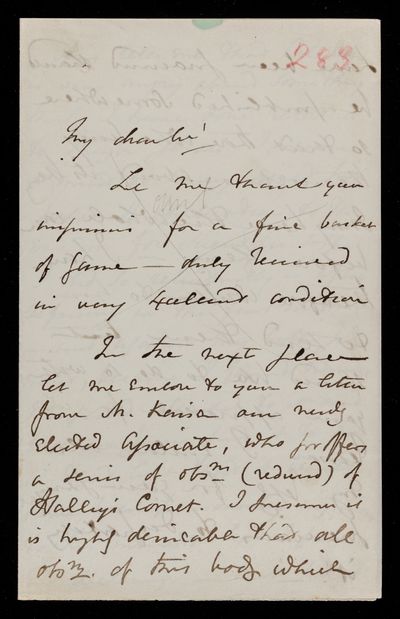 283
My dear Sir!
Let me thank you
imprimis for a fine basket
of Game — duly received
in very excellent condition
In the next place
let me enclose to you a letter
from M. Kaiser our newly
elected Associate, who proffers
a series of obsns (reduced) of
Halley's Comet. I presume it
is highly desirable that all
obsns. of this body which